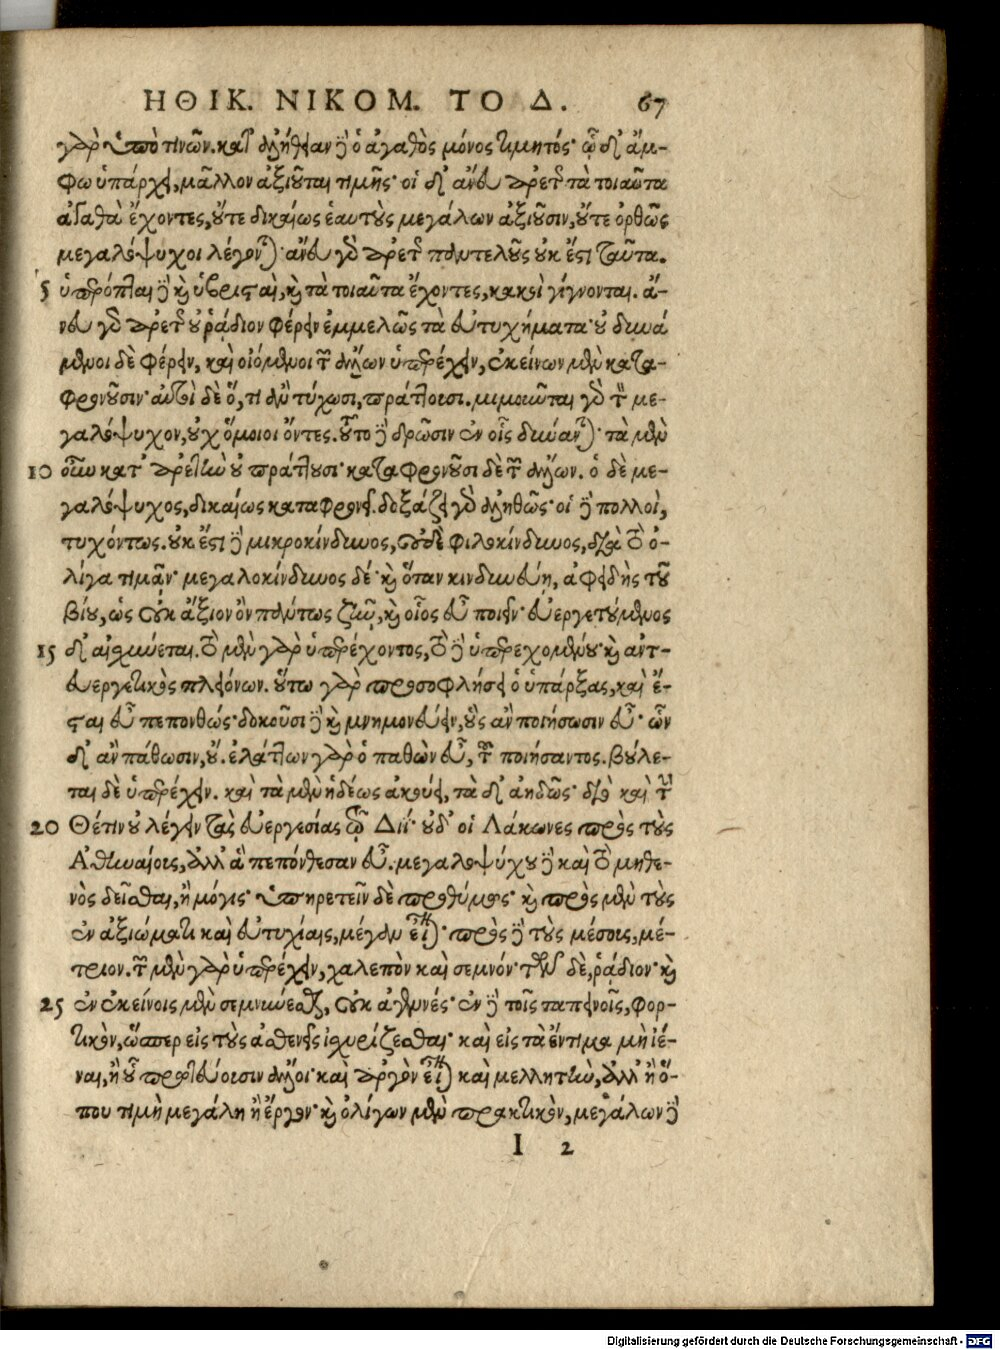 ΗΘΙΚ. ΝΙΚΟΜ. ΤΟ Δ. 67
γὰρ ὑπὸ τινῶν. κατ' ἀλήθειαν δ' ὁ ἀγαθὸς μόνος τιμητός· ᾧ δ' ἄμ-
φω ὑπάρχει, μᾶλλον ἀξιοῦται τιμῆς· οἱ δ' ἄνευ ἀρετῆς τὰ τοιαῦτα
ἀγαθὰ ἔχοντες, οὔτε δικαίως ἑαυτοὺς μεγάλων ἀξιοῦσιν, οὔτε ὀρθῶς
μεγαλόψυχοι λέγονται· ἄνευ γὰρ ἀρετῆς παντελοῦς οὐκ ἔστι ταῦτα.
5 ὑπερόπται δὲ καὶ ὑβρισταὶ, καὶ τὰ τοιαῦτα ἔχοντες, κακοὶ γίγνονται. ἄ-
νευ γὰρ ἀρετῆς οὐ ῥάδιον φέρειν ἐμμελῶς τὰ εὐτυχήματα· οὐ δυνά
μενοι δὲ φέρειν, καὶ οἰόμενοι τῶν ἄλλων ὑπερέχειν, ἐκείνων μὲν κατα-
φρονοῦσιν· αὐτοὶ δὲ ὅ, τι ἂν τύχωσι, πράττουσι. μιμοῦνται γὰρ τὸν με-
γαλόψυχον, οὐχ ὅμοιοι ὄντες. τοῦτο δὲ δρῶσιν ἐν οἷς δύνανται· τὰ μὲν
10 οὖν κατ' ἀρετὴν οὐ πράττουσι· καταφρονοῦσι δὲ τῶν ἄλλων. ὁ δὲ με-
γαλόψυχος, δικαίως καταφρονεῖ. δοξάζει γὰρ ἀληθῶς· οἱ δὲ πολλοὶ,
τυχόντως. οὐκ ἔστι δὲ μικροκίνδυνος, οὐδὲ φιλοκίνδυνος, διὰ τὸ ὀ-
λίγα τιμᾶν· μεγαλοκίνδυνος δέ· καὶ ὅταν κινδυνεύῃ, ἀφειδὴς τοῦ
βίου, ὡς οὐκ ἄξιον ὂν πάντως ζῆν, καὶ οἷος εὖ ποιεῖν· εὐεργετούμενος
15 δ' αἰσχύνεται. τὸ μὲν γὰρ ὑπερέχοντος, τὸ δὲ ὑπερεχομένου· καὶ ἀντ-
ευεργετικὸς πλειόνων. οὕτω γὰρ προσοφλήσει ὁ ὑπάρξας, καὶ ἔ-
σται εὖ πεπονθώς· δοκοῦσι δὲ καὶ μνημονεύειν, οὓς ἂν ποιήσωσιν εὖ· ὧν
δ' ἂν πάθωσιν, οὔ. ἐλάττων γὰρ ὁ παθὼν εὖ, τοῦ ποιήσαντος. βούλε-
ται δὲ ὑπερέχειν. καὶ τὰ μὲν ἡδέως ἀκούει, τὰ δ' ἀηδῶς· διὸ καὶ τὴν
20 Θέτιν οὐ λέγειν τὰς εὐεργεσίας τῷ Διΐ· οὐδ' οἱ Λάκωνες πρὸς τοὺς
Ἀθηναίους, ἀλλ' ἃ πεπόνθεσαν εὖ. μεγαλοψύχου δὲ καὶ τὸ μηθε-
νὸς δεῖσθαι, ἢ μόγις· ὑπηρετεῖν δὲ προθύμως· καὶ πρὸς μὲν τοὺς
ἐν ἀξιώματι καὶ εὐτυχίαις, μέγαν εἶναι· πρὸς δὲ τοὺς μέσους, μέ-
τριον. τῶν μὲν γὰρ ὑπερέχειν, χαλεπὸν καὶ σεμνόν· τῶν δὲ, ῥάδιον· καὶ
25 ἐν ἐκείνοις μὲν σεμνύνεσθαι, οὐκ ἀγεννές· ἐν δὲ τοῖς ταπεινοῖς, φορ-
τικὸν, ὥσπερ εἰς τοὺς ἀσθενεῖς ἰσχυρίζεσθαι· καὶ εἰς τὰ ἔντιμα μὴ ἰέ-
ναι, ἢ οὗ πρωτεύουσιν ἄλλοι· καὶ ἀργὸν εἶναι καὶ μελλητὴν, ἀλλ' ἢ ὅ-
που τιμὴ μεγάλη ἢ ἔργον· καὶ ὀλίγων μὲν πρακτικὸν, μεγάλων δὲ
I 2
Digitalisierung gefördert durch die Deutsche Forschungsgemeinschaft - DFG